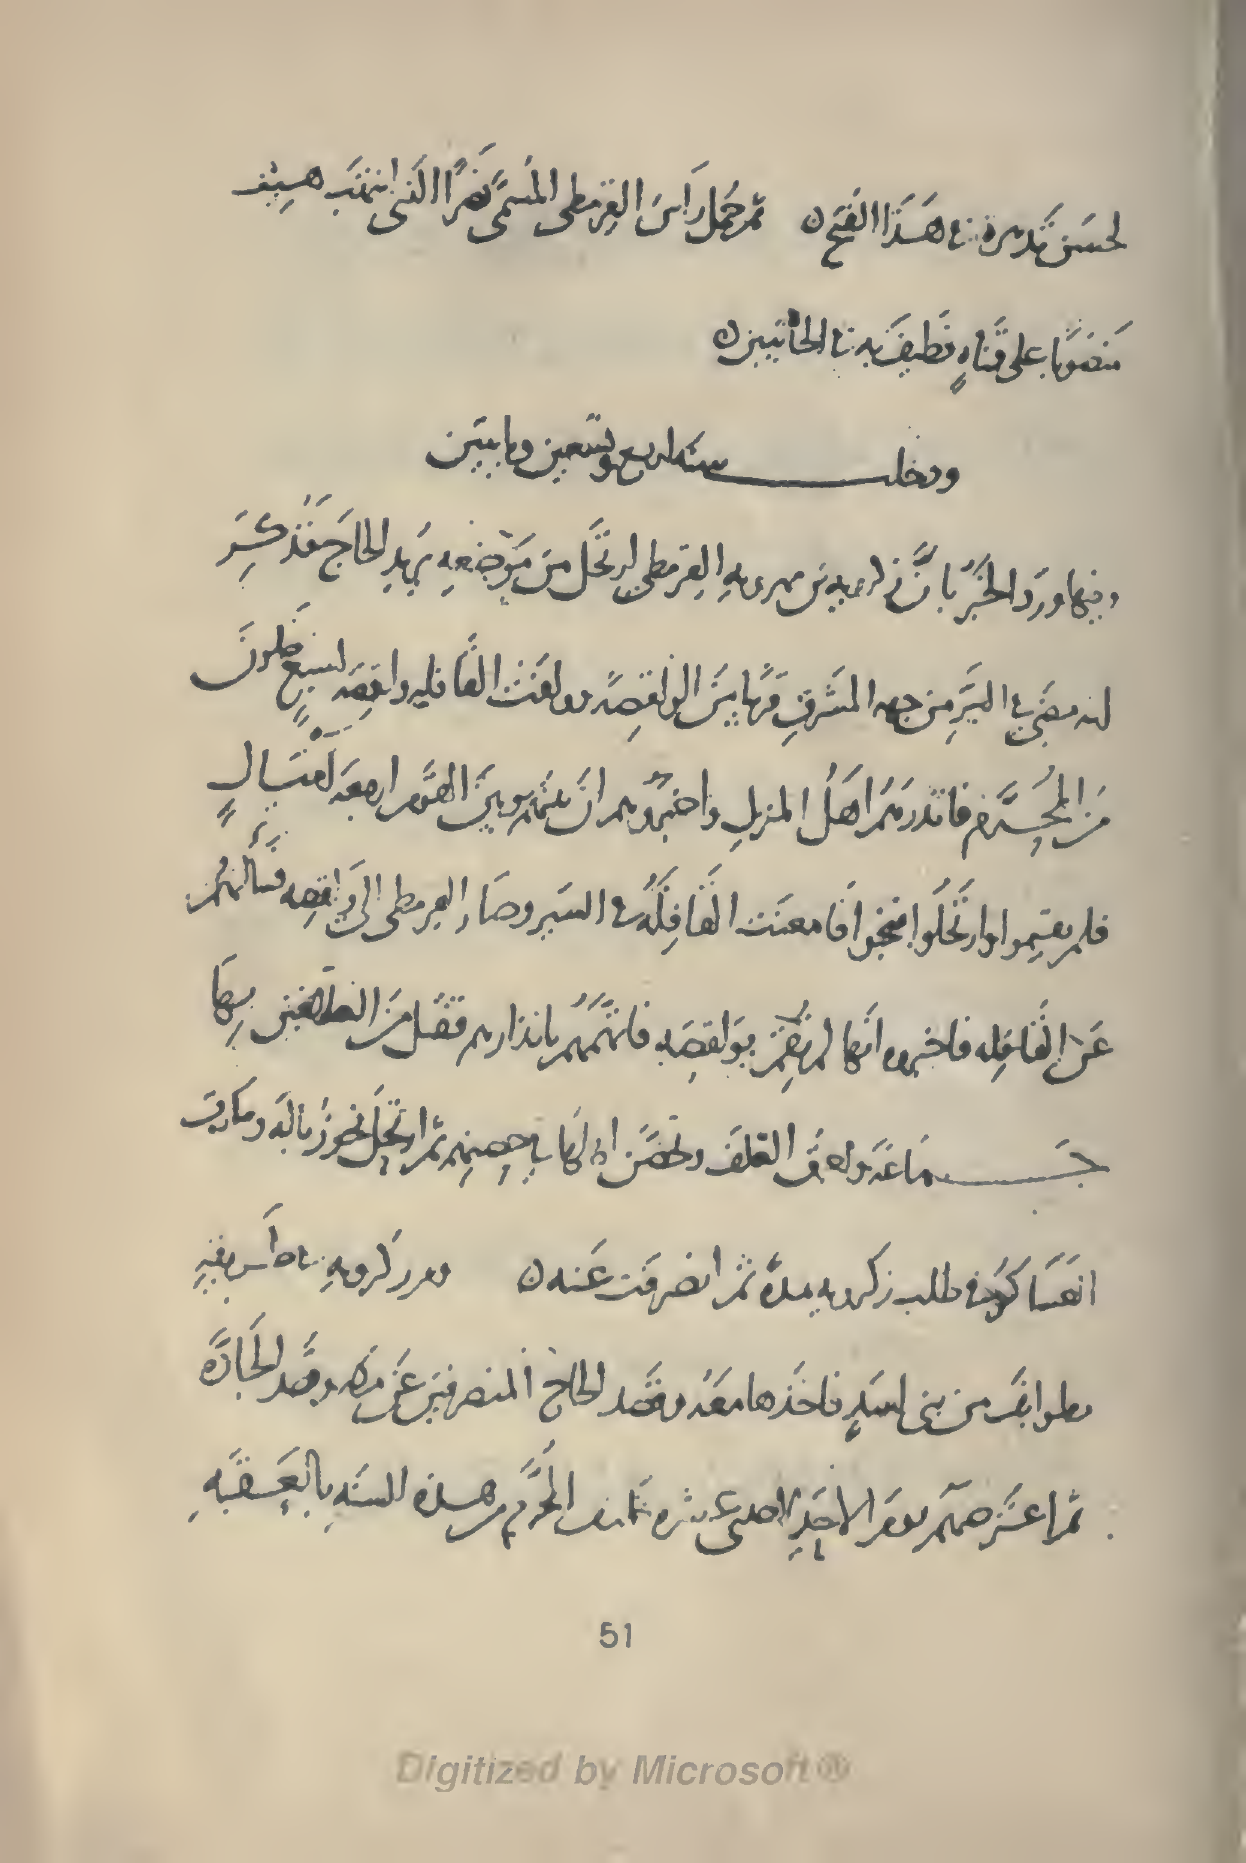 لحسن تدبيره في هذا الفتح ثم حمل رأس القرمطي المسمى نصرا الذي انتهب هيت
منصوبا على قناة فطيف به في الجانبين
ودخلت سنة اربع وتسعين ومايتين
وفيها ورد الخبر بأن زكرويه بن مهرويه القرمطي ارتحل من موضعه يريد الحاج فذكر
انه مضى في البر من جهة المشرق
من المحرم فانذرهم اهل المنزل واخبروهم ان بينهم وبين القوم اربعة اميال
فلم يقيموا وارتحلوا فنجوا فامعنت القافلة في السير وصار القرمطي الى واقصة فسألهم
عن القافلة فاخبروه انها لم تقم بواقصة فاتهمهم بانذارهم فقتل من العلافين بها
جماعة واحرق العلف وتحصن اهلها في حصنهم ثم ارتحل نحو زبالة
العساكر في طلب زكرويه مدة ثم انصرفت عنه ومر زكرويه في طريقه
بطوائف من بني اسد فاخذها معه وقصد الحاج المنصرفين عن مكة وقصد الجادة
ثم اعترضهم يوم الاحد لاحدى عشرة من المحرم من هذه السنة بالعقبة
51
Digitized by Microsoft®